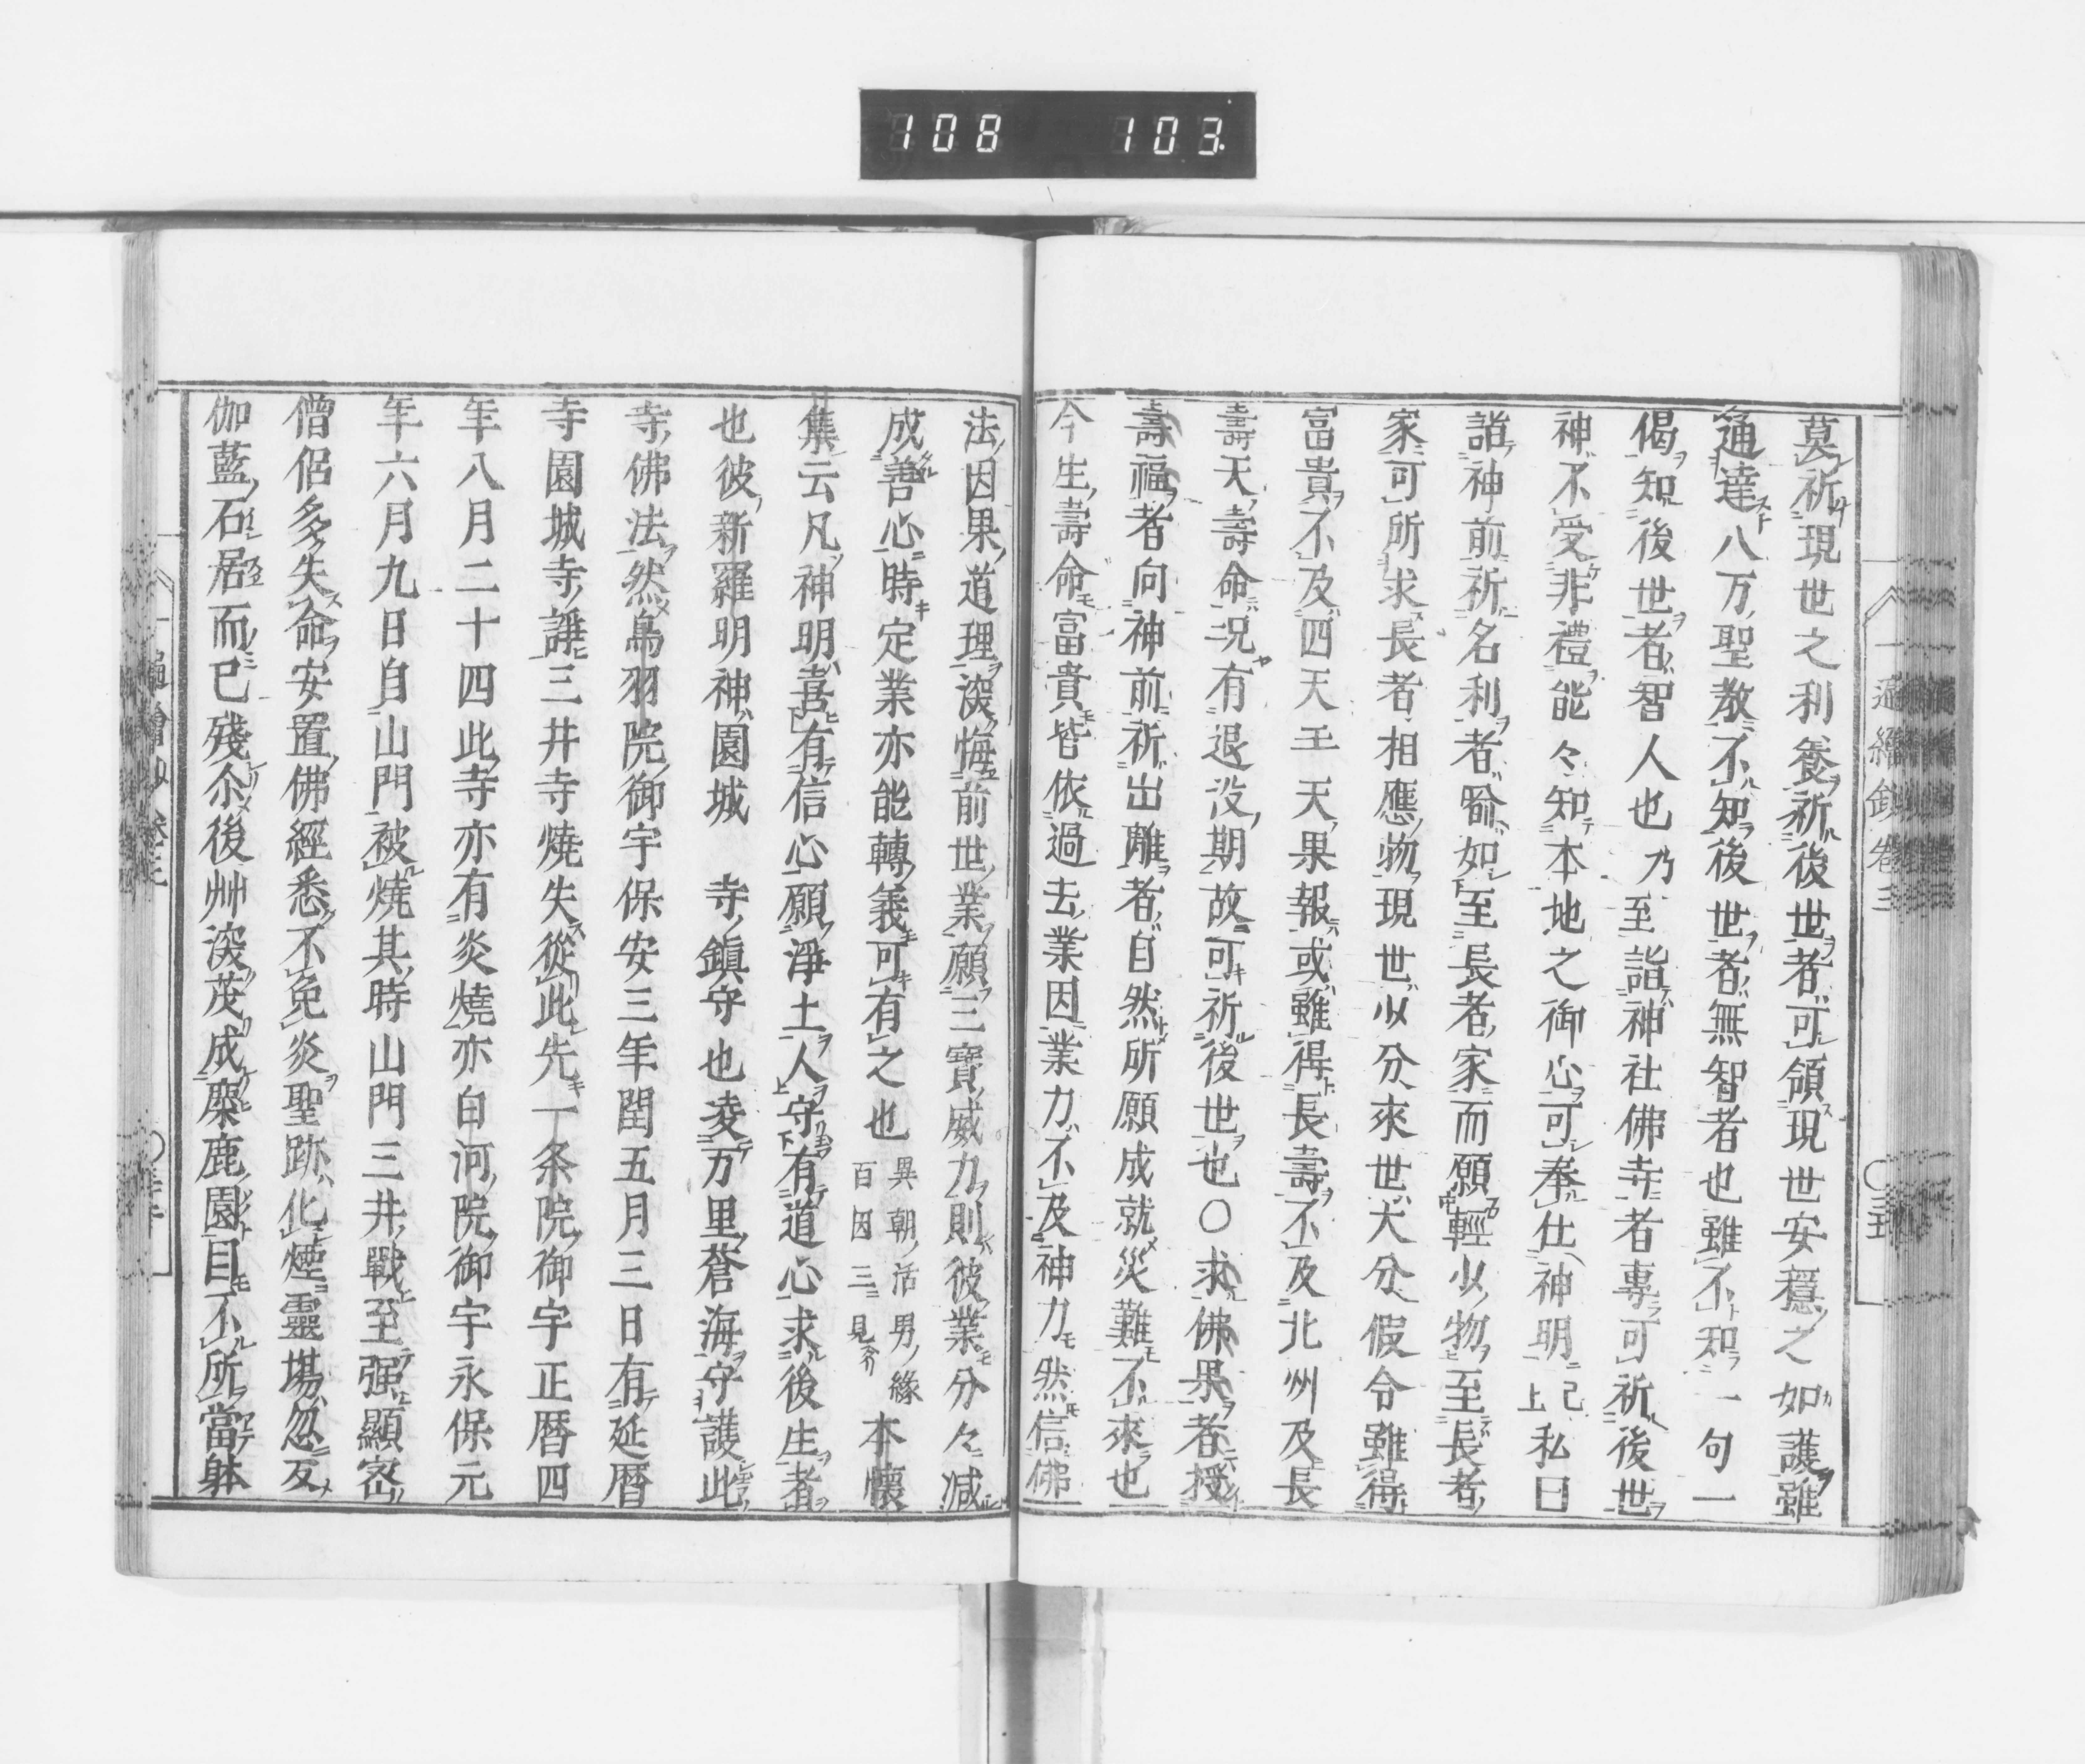 108 103
莫祈現世之利養祈後世者可領現世安穩之如護雖
通達八万聖教不知後世者無智者也雖不知一句一
偈知後世者智人也乃至詣神社佛寺者專可祈後世
神不受非禮能々知本地之御心可奉仕神明上已私曰
詣神前祈名利者喻如至長者家而願輕少物至長者
家可所求長者相應物現世少分來世大分假令雖得
富貴不及四天王天果報或雖得長壽不及北州及長
壽天壽命况有退没期故可祈後世也〇求佛果者授
壽福者向神前祈出離者自然所願成就災難不來也
今生壽命富貴皆依過去業因業力不及神力然信佛
法因果道理深悔前世業願三寶威力則彼業分々減
成善心時定業亦能轉義可有之也異朝活男緣百因三見本懷
集云凡神明喜有信心願淨土人守有道心求後生者
也彼新羅明神園城寺鎮守也凌万里蒼海守護此
寺佛法然鳥羽院御宇保安三年閏五月三日有延暦
寺園城寺諍三井寺燒失從此先一条院御宇正暦四
年八月二十四此寺亦有炎燒亦白河院御宇永保元
年六月九日自山門被燒其時山門三井戰至强顯密
僧侶多失命安置佛經悉不免炎聖跡化煙靈場忽
伽藍石居而已殘尒後艸深茂成麋鹿園目不所當躰